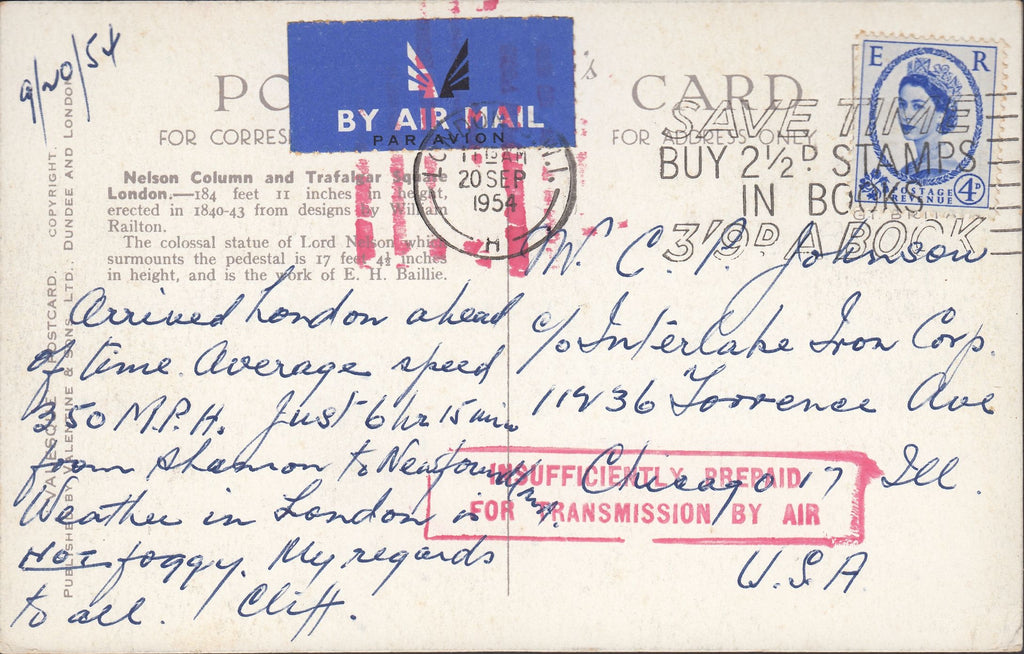 9/20/54
PO CARD
BY AIR MAIL
PAR AVION
FOR CORRES
FOR ADDRESS ONLY
E R
POSTAGE
REVENUE
4D
SAVE TIME
BUY 2½D. STAMPS
IN BOOKS
3'9D A BOOK
AM
20 SEP
1954
W.I.
H
Nelson Column and Trafalgar Square
London.—184 feet 11 inches in height,
erected in 1840-43 from designs by William
Railton.
The colossal statue of Lord Nelson which
surmounts the pedestal is 17 feet 4½ inches
in height, and is the work of E. H. Baillie.
VALESQUE POSTCARD. COPYRIGHT.
PUBLISHED BY VALENTINE & SONS, LTD., DUNDEE AND LONDON
Arrived London ahead
of time. Average speed
350 M.P.H. Just 6 hr 15 min
from Shannon to Newfoundland.
Weather in London is
not foggy. My regards
to all. Cliff.
Johnson
c/o Interlake Iron Corp.
11236 Torrence Ave
Chicago 17 Ill.
U.S.A
INSUFFICIENTLY PREPAID
FOR TRANSMISSION BY AIR